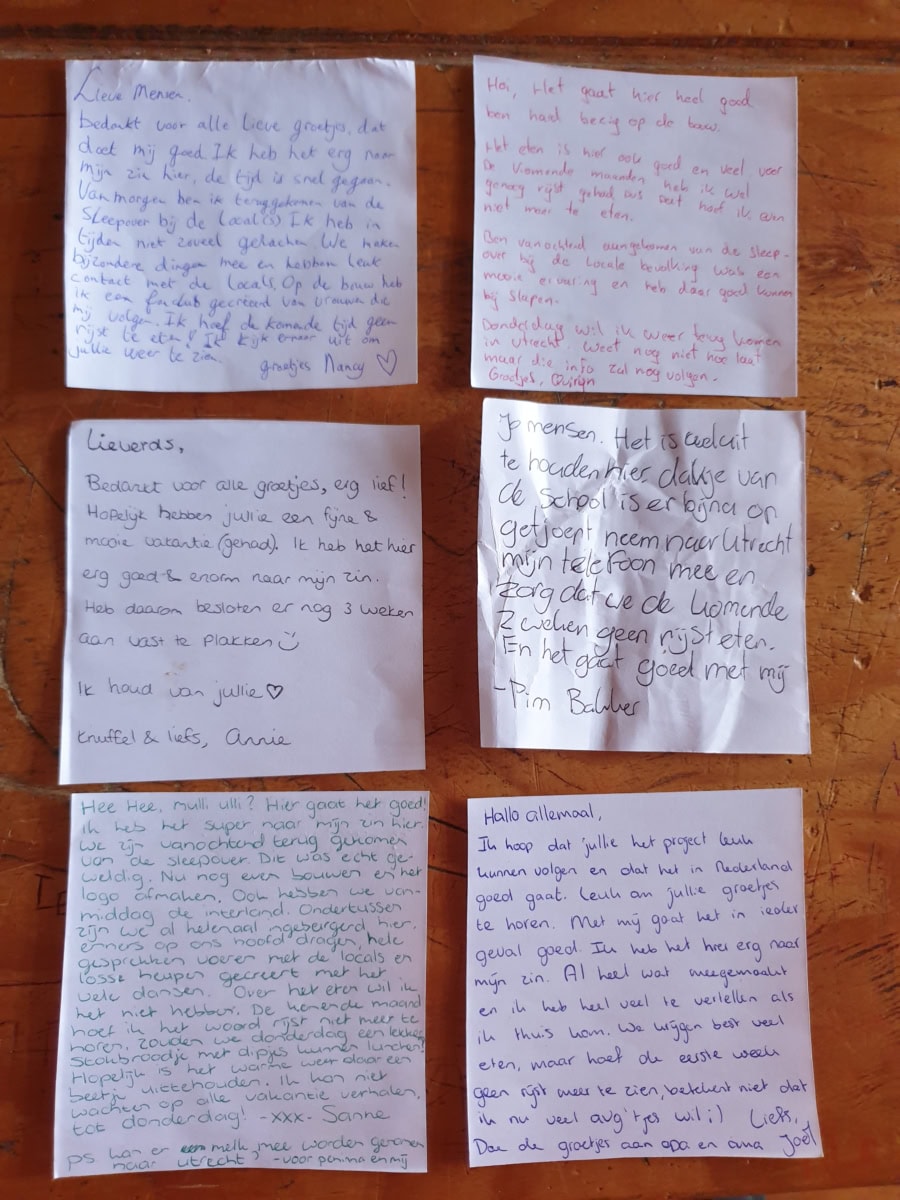 Lieve Mensen.
Bedankt voor alle lieve groetjes, dat
doet mij goed. Ik heb het erg naar
mijn zin hier, de tijd is snel gegaan.
Van morgen ben ik teruggekomen van de
Sleepover bij de Local(s) Ik heb in
tijden niet zoveel gelachen. We maken
bijzondere dingen mee en hebben leuk
contact met de Locals. Op de bouw heb
ik een fanclub gecreëerd van vrouwen die
mij volgen. Ik hoef de komende tijd geen
rijst te eten! Ik kijk ernaar uit om
jullie weer te zien.
groetjes Nancy ♡
Hoi, Het gaat hier heel goed
ben hard bezig op de bouw.
Het eten is hier ook goed en veel voor
De komende maanden heb ik wel
genoeg rijst gehad dus dat hoef ik even
niet meer te eten.
Ben vanochtend aangekomen van de sleep-
over bij de locale bevolking was een
mooie ervaring en heb daar goed kunnen
bij slapen.
Donderdag wil ik weer terug komen
in utrecht, weet nog niet hoe laat
maar die info zal nog volgen.
Groetjes, Quirijn
Lieverds,
Bedankt voor alle groetjes, erg lief!
Hopelijk hebben jullie een fijne &
mooie vakantie (gehad). Ik heb het hier
erg goed & enorm naar mijn zin.
Heb daarom besloten er nog 3 weken
aan vast te plakken :)
Ik houd van jullie ♡
Knuffel & liefs, Annie
Jo mensen. Het is wel uit
te houden hier, dakje van
de School is er bijna op
getjoept neem naar Utrecht
mijn telefoon mee en
zorg dat we de komende
2 weken geen rijst eten.
En het gaat goed met mij
- Pim Bakker
Hee Hee, mulli ulli? Hier gaat het goed!
Ik heb het super naar mijn zin hier.
We zijn vanochtend terug gekomen
van de sleepover. Dit was echt ge-
weldig. Nu nog even bouwen en het
logo afmaken. Ook hebben we van-
middag de interland. Ondertussen
zijn we al helemaal ingeburgerd hier.
emmers op ons hoofd dragen, hele
gesprekken voeren met de locals en
losse heupen gecreert met het
vele dansen. Over het eten wil ik
het niet hebben. De komende maand
hoef ik het woord rijst niet meer te
horen, zouden we donderdag een lekker
Stokbroodje met dipjes kunnen lunchen?
Hopelijk is het warme weer daar een
beetje uittehouden. Ik kan niet
wachten op alle vakantie verhalen,
tot donderdag! -xxx- Sanne
PS kan er een melk mee worden genomen
naar utrecht? - voor penima en mij
Hallo allemaal,
Ik hoop dat jullie het project leuk
kunnen volgen en dat het in Nederland
goed gaat. Leuk om jullie groetjes
te horen. Met mij gaat het in ieder
geval goed. Ik heb het hier erg naar
mijn zin. Al heel wat meegemaakt
en ik heb heel veel te vertellen als
ik thuis kom. We krijgen best veel
eten, maar hoef de eerste week
geen rijst meer te zien, betekent niet dat
ik nu veel avg'tjes wil ;) Liefs,
Doe de groetjes aan opa en oma Joël